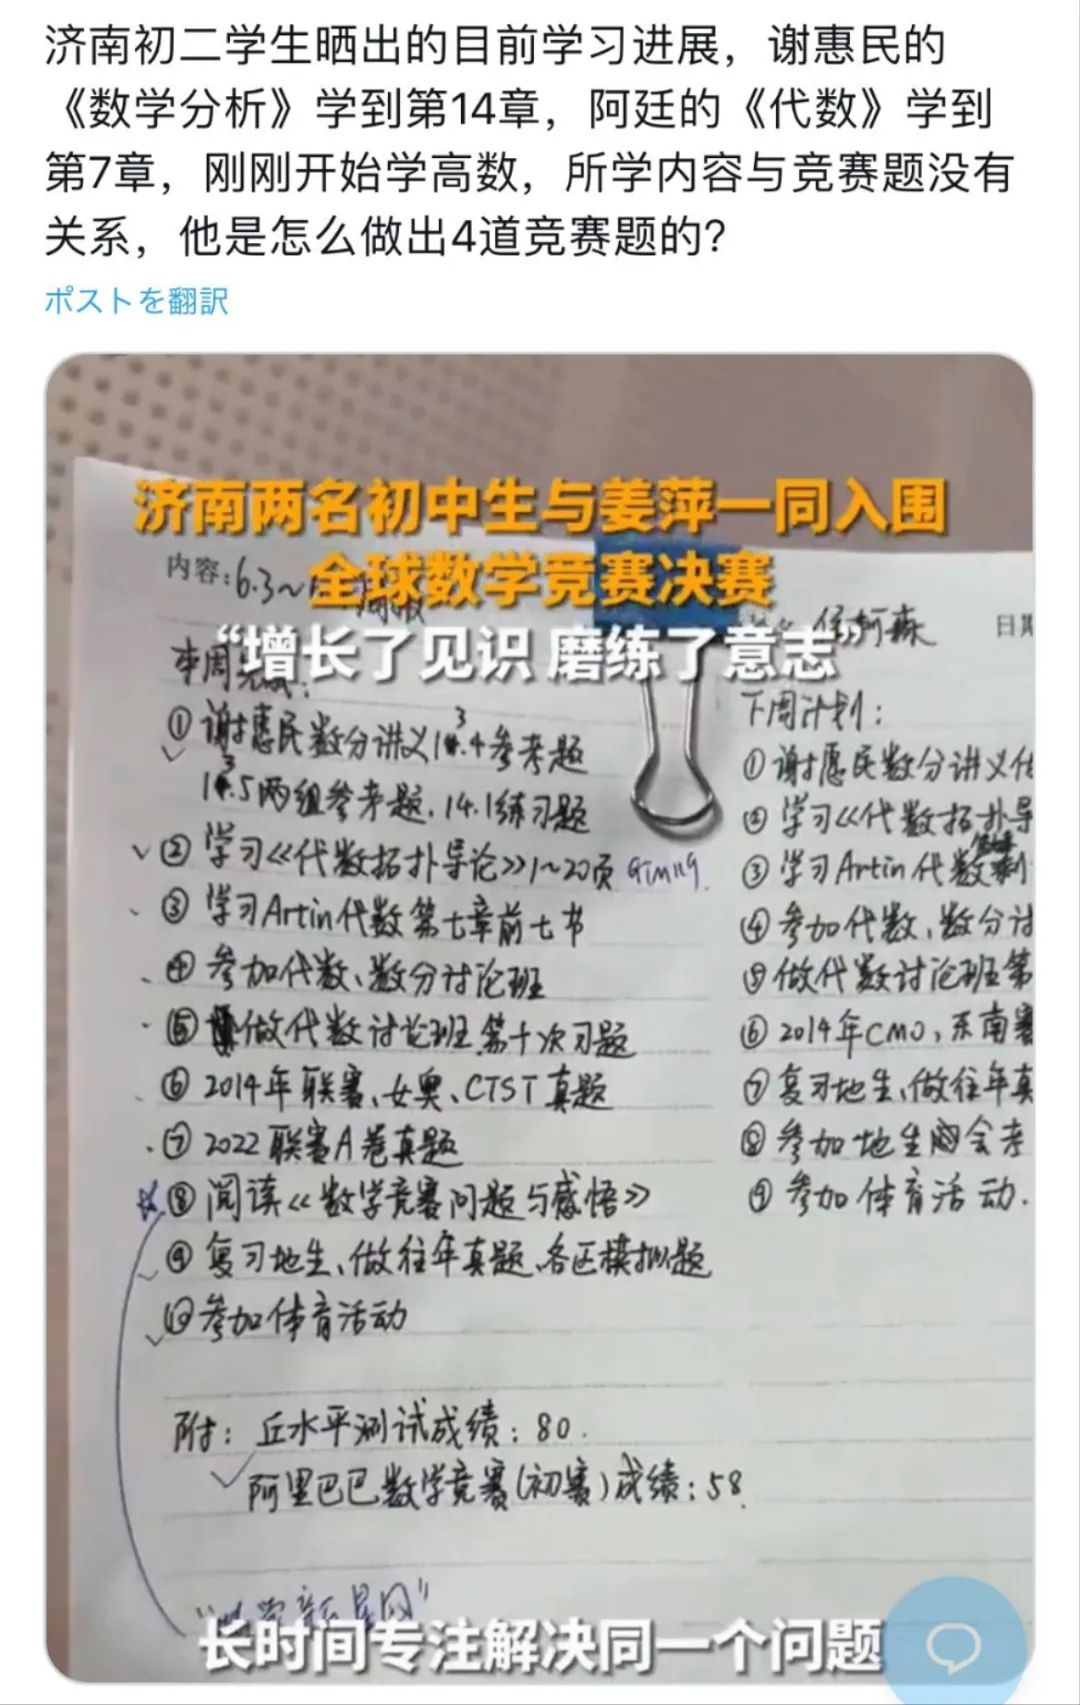 济南初二学生晒出的目前学习进展，谢惠民的
《数学分析》学到第14章，阿廷的《代数》学到
第7章，刚刚开始学高数，所学内容与竞赛题没有
关系，他是怎么做出4道竞赛题的？
ポストを翻訳
济南两名初中生与姜萍一同入围
全球数学竞赛决赛
“增长了见识 磨练了意志”
内容：6.3~
日期
本周完成：
①谢惠民数分讲义13.4参考题
13.5两组参考题.14.1练习题
②学习《代数拓扑导论》1~20页 GTM119.
③学习Artin代数第七章前七节
④参加代数、数分讨论班
⑤做代数讨论班第十次习题
⑥2014年联赛、女奥、CTST真题
⑦2022联赛A卷真题
⑧阅读《数学竞赛问题与感悟》
⑨复习地生、做往年真题、各区模拟题
⑩参加体育活动
下周计划：
①谢惠民数分讲义
②学习《代数拓扑导
③学习Artin代数
④参加代数、数分讨
⑤做代数讨论班第
⑥2014年CMO，东南赛
⑦复习地生、做往年真
⑧参加地生会考
⑨参加体育活动.
附：丘水平测试成绩：80.
阿里巴巴数学竞赛(初赛)成绩：58.
长时间专注解决同一个问题